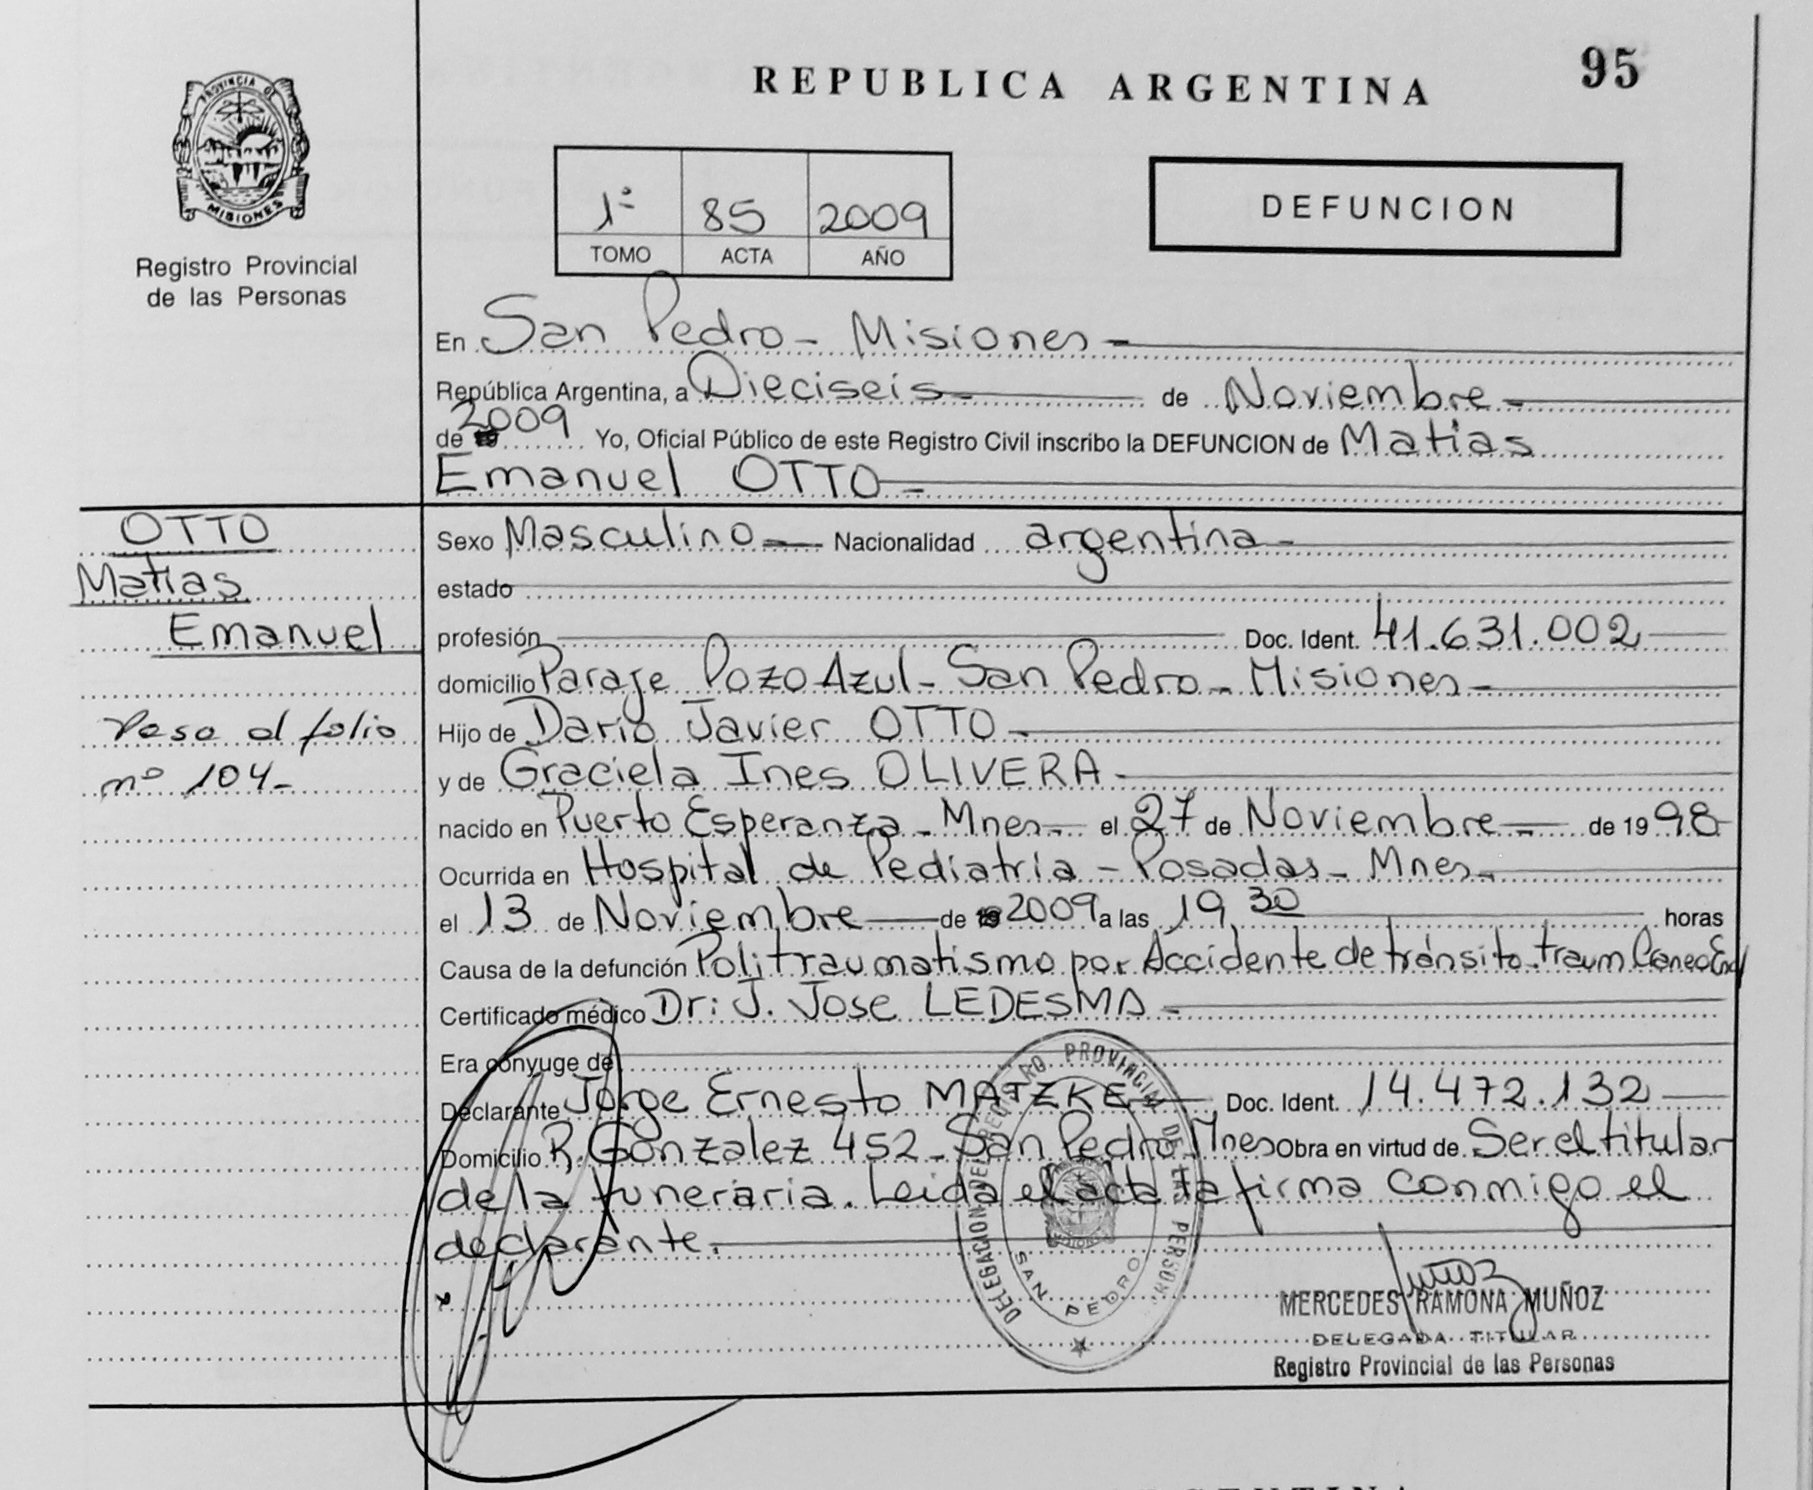 95
REPUBLICA ARGENTINA
PROVINCIA DE
MISIONES
Registro Provincial
de las Personas
1º 85 2009
TOMO ACTA AÑO
DEFUNCION
En San Pedro - Misiones -
República Argentina, a Dieciseis de Noviembre -
de 2009 Yo, Oficial Público de este Registro Civil inscribo la DEFUNCION de Matias
Emanuel OTTO -
OTTO
Matias
Emanuel
Pasa al folio
nº 104 -
Sexo Masculino - Nacionalidad argentina -
estado
profesión Doc. Ident. 41.631.002
domicilio Paraje Pozo Azul - San Pedro - Misiones -
Hijo de Dario Javier OTTO -
y de Graciela Ines OLIVERA -
nacido en Puerto Esperanza - Mnes - el 27 de Noviembre - de 1998
Ocurrida en Hospital de Pediatría - Posadas - Mnes -
el 13 de Noviembre de 2009 a las 19,30 horas
Causa de la defunción Politraumatismo por Accidente de tránsito. traum
Certificado médico Dr: J. Jose LEDESMA -
Era cónyuge de
Declarante Jorge Ernesto MATZKE - Doc. Ident. 14.472.132
Domicilio R. Gonzalez 452 - San Pedro Mnes Obra en virtud de Ser el titular
de la funeraria. Leida el acta la firma conmigo el
declarante.
DELEGACION DEL REGISTRO PROVINCIAL DE LAS PERSON.
SAN PEDRO
MERCEDES RAMONA MUÑOZ
DELEGADA TITULAR
Registro Provincial de las Personas